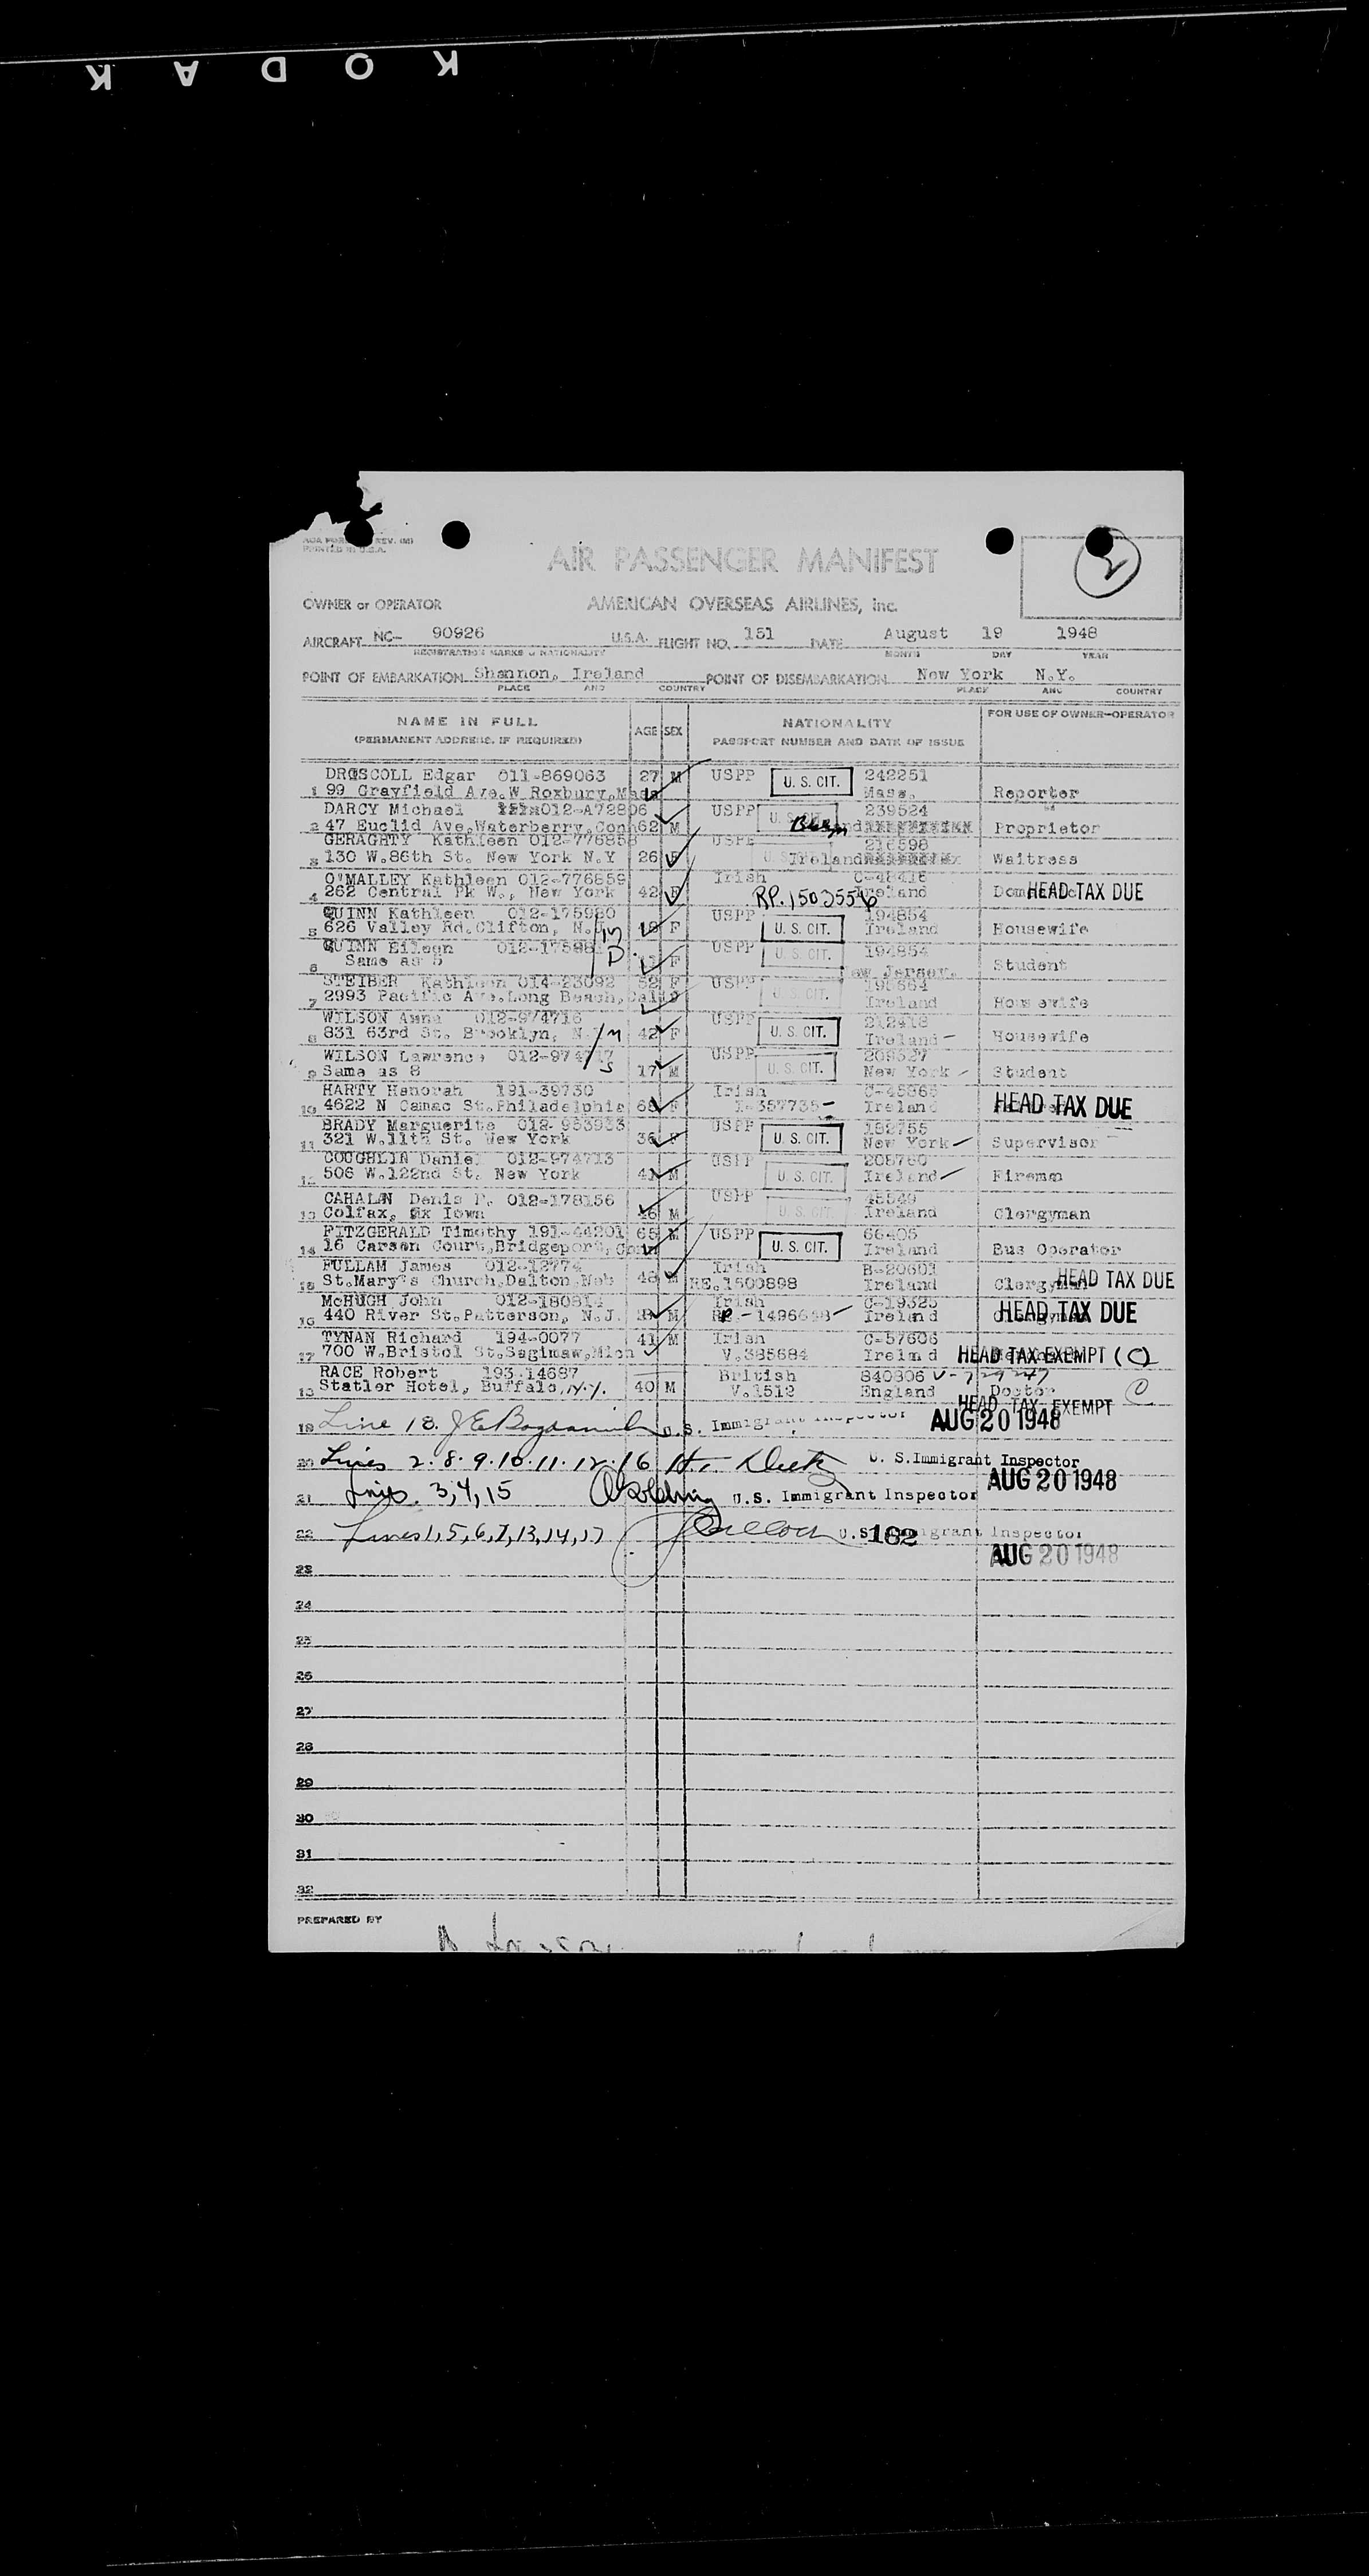 KODAK
REV. (M)
PRINTED IN U.S.A.
AIR PASSENGER MANIFEST
2
OWNER or OPERATOR AMERICAN OVERSEAS AIRLINES, Inc.
AIRCRAFT NC- 90926 U.S.A. FLIGHT NO. 151 DATE August 19 1948
REGISTRATION MARKS & NATIONALITY MONTH DAY YEAR
POINT OF EMBARKATION Shannon, Ireland POINT OF DISEMBARKATION New York N.Y.
PLACE AND COUNTRY PLACE AND COUNTRY
NAME IN FULL AGE SEX NATIONALITY FOR USE OF OWNER-OPERATOR
(PERMANENT ADDRESS, IF REQUIRED) PASSPORT NUMBER AND DATE OF ISSUE
DRISCOLL Edgar 011-869063 27 M USPP U. S. CIT. 242251
1 99 Grayfield Ave.W Roxbury,Mass Mass. Reporter
DARCY Michael 012-A72806 USPP U. S. CIT. 239524 "
2 47 Euclid Ave,Waterberry,Conn 62 M Proprietor
GERAGHTY Kathleen 012-776858 U. S. 216598
3 130 W.86th St. New York N.Y 26 F Ireland Waitress
O'MALLEY Kathleen 012-776859 Irish C-48418
4 262 Central Pk W., New York 42 F RP.1502556 Ireland HEAD TAX DUE
QUINN Kathleen 012-175980 USPP 194854
5 626 Valley Rd.Clifton, N.J. F U. S. CIT. Ireland Housewife
QUINN Eileen USPP U. S. CIT. 194854
6 Same as 5 D F New Jersey. Student
STEIBER Kathleen 014-23092 52 F USPP U. S. CIT.
7 2993 Pacific Ave.Long Beach,Calif Ireland Housewife
WILSON Anna 012-974716 USPP 212418
8 831 63rd St. Brooklyn, N. M 42 F U. S. CIT. Ireland - Housewife
WILSON Lawrence 012-974717 USPP
9 Same as 8 S 17 M U. S. CIT. New York - Student
HARTY Hanorah 191-39730 Irish C-45865
10 4622 N Camac St.Philadelphia F I-357735- Ireland HEAD TAX DUE
BRADY Marguerite 012-953933 USPP 182755
11 321 W.11th St. New York 36 F U. S. CIT. New York - Supervisor
COUGHLIN Daniel 012-974713 208760
12 506 W.122nd St. New York 41 M U. S. CIT. Ireland - Fireman
CAHALAN Denis P. 012-178156 USPP 45549
13 Colfax, Iowa 46 M U. S. CIT. Ireland Clergyman
FITZGERALD Timothy 191-44201 65 M USPP 66405
14 16 Carsen Court,Bridgeport,Conn U. S. CIT. Ireland Bus Operator
FULLAM James 012-12774 Irish B-20601
15 St.Mary's Church,Dalton,Neb 48 M RE.1500898 Ireland Clergyman HEAD TAX DUE
McHUGH John 012-180814 Irish C-19325
16 440 River St.Patterson, N.J. M Ireland HEAD TAX DUE
TYNAN Richard 194-0077 41 M Irish C-57606
17 700 W.Bristol St.Sagimaw,Mich V.385684 Ireland HEAD TAX EXEMPT (C)
RACE Robert 193-14687 British 840806
18 Statler Hotel, Buffalo, N.Y. 40 M V.1512 England Doctor C
HEAD TAX EXEMPT
19 Line 18. U.S. Immigrant Inspector AUG 20 1948
20 Lines 2.8.9.10.11.12.16 U. S.Immigrant Inspector
21 Lines 3,4,15 U.S. Immigrant Inspector AUG 20 1948
22 Lines 1,5,6,7,13,14,17 U.S. 182 Immigrant Inspector
AUG 20 1948
23
24
25
26
27
28
29
30
31
32
PREPARED BY